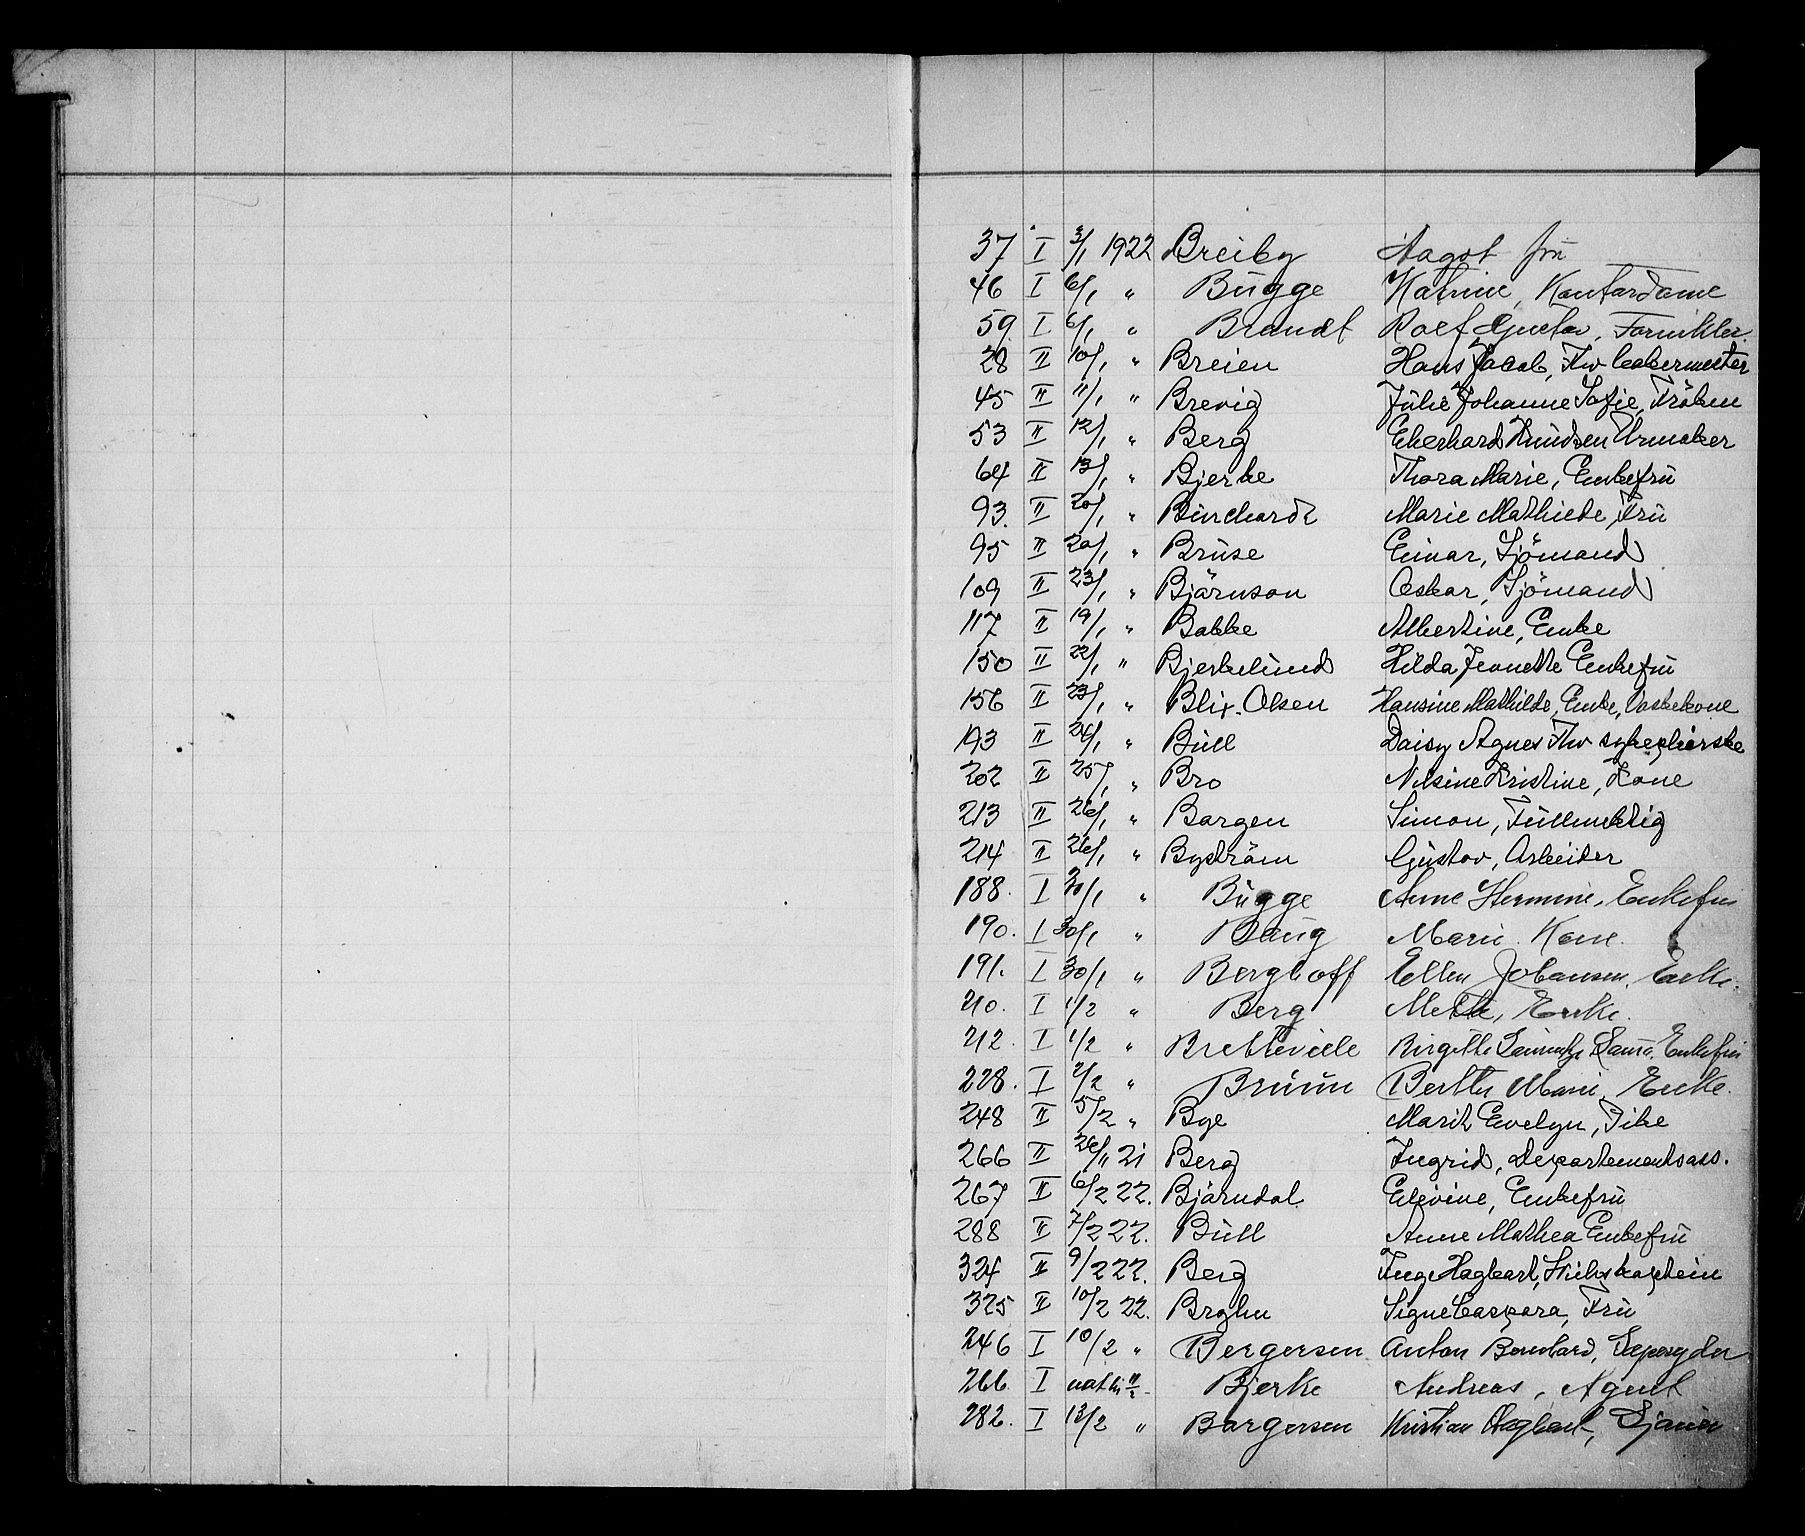 37 I 3/1 1922 Breiby Aagot fru
46 I 6/1 " Bugge Katrine, Kontordame
59. I 6/1 " Brandt Rolf Gustav, Fornikler
28 II 10/1 " Breien Hans Jacob, Fhv Lakermester
45 II 11/1 " Brevig Julie Johanne Sofie, Fröken
53 II 12/1 " Berg Eberhard Knudsen Urmaker
64 II 13/1 " Bjerke Thora Marie, Enkefru
93. II 20/1 " Burchardt Marie Mathilde, Fru
95 II 20/1 " Bruse Einar, Sjömand
109 II 23/1 " Björnson Oskar, Sjömand
117 II 19/1 " Bakke Albertine, Enke
150 II 22/1 " Bjerkelund Hilda Jeanette Enkefru
156 II 23/1 " Blix-Olsen Hansine Mathilde, Enke, Vaskekone
193 II 24/1 " Bull Daisy Agnes Fhv sykepleierske
202 II 25/1 " Bro Nilsine Kristine, Kone
213 II 26/1 " Borgen Simon, Fullmektig
214 II 26/1 " Byström Gustav, Arbeider
188. I 30/1 " Bugge Anne Hermine, Enkefru
190. I 30/1 " Baug Marie. Kone.
191. I 30/1 " Berghoff Ellen Johansen, Enke.
210. I 1/2 " Berg Mette, Enke.
212. I 1/2 " Bretteville Birgitte Enkefru
228. I 2/2 " Bruun Berthe Marie, Enke.
248 II 5/2 " Bye Marit Evelyn, Pike
266 II 26/11 21 Berg Ingrid, Departementsass.
267 II 6/2 22. Björndal Elevine, Enkefru
288 II 7/2 22. Bull Anne Mathea Enkefru
324 II 9/2 22. Berg Inge Hagbart, Skibskaptein
325 II 10/2 22. Bryhn Signe Caspara, Fru
246 I 10/2 " Bergersen Anton Bernhard,
266. I nat til 11/2 - Bjerke Andreas, Agent
282. I 13/2 " Borgersen Kristian Hagbart,